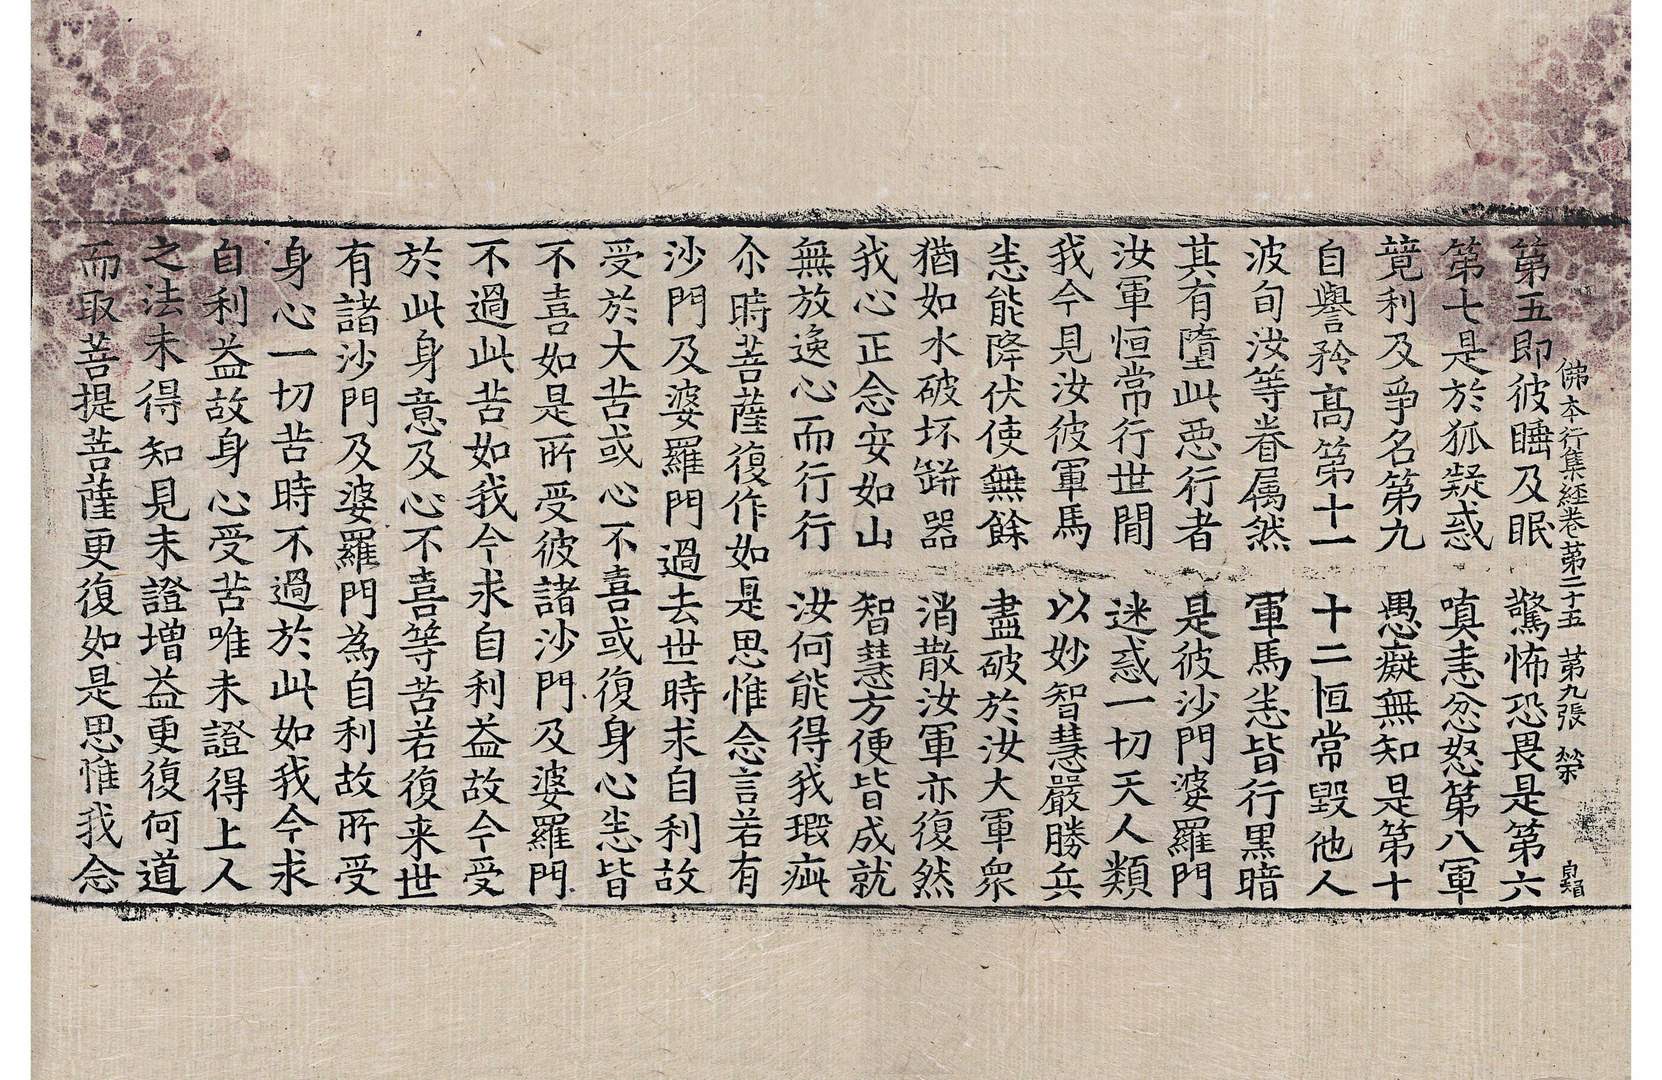 佛本行集經卷第二十五　第九張　榮
第五即彼睡及眠　驚怖恐畏是第六
第七是於狐疑惑　嗔恚忿怒第八軍
竟利及爭名第九　愚癡無知是第十
自譽矜高第十一　十二恒常毀他人
波旬汝等眷属然　軍馬恙皆行黑暗
其有墮此惡行者　是彼沙門婆羅門
汝軍恒常行世間　迷惑一切天人類
我今見汝彼軍馬　以妙智慧嚴勝兵
恙能降伏使無餘　盡破於汝大軍衆
猶如水破坏缾器　消散汝軍亦復然
我心正念安如山　智慧方便皆成就
無放逸心而行行　汝何能得我瑕疵
尒時菩薩復作如是思惟念言若有
沙門及婆羅門過去世時求自利故
受於大苦或心不喜或復身心恙皆
不喜如是所受彼諸沙門及婆羅門
不過此苦如我今求自利益故今受
於此身意及心不喜等苦若復来世
有諸沙門及婆羅門為自利故所受
身心一切苦時不過於此如我今求
自利益故身心受苦唯未證得上人
之法未得知見未證增益更復何道
而取菩提菩薩更復如是思惟我念